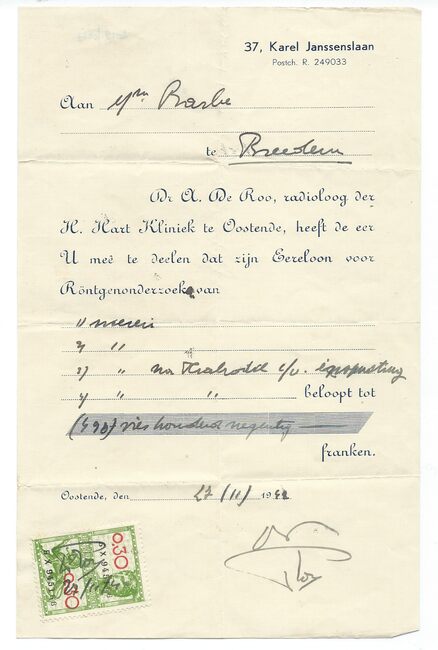 37, Karel Janssenslaan
Postch. R. 249033
Aan Mm
te Breedene
Dr A. De Roo, radioloog der
H. Hart Kliniek te Oostende, heeft de eer
U meê te deelen dat zijn Eereloon voor
Röntgenonderzoek van
1/ nieren
2/ "
3/ " na i/v. inspuiting
4/ " " beloopt tot
(490) vier honderd negentig
franken.
Oostende, den 27/11/1941
0.30